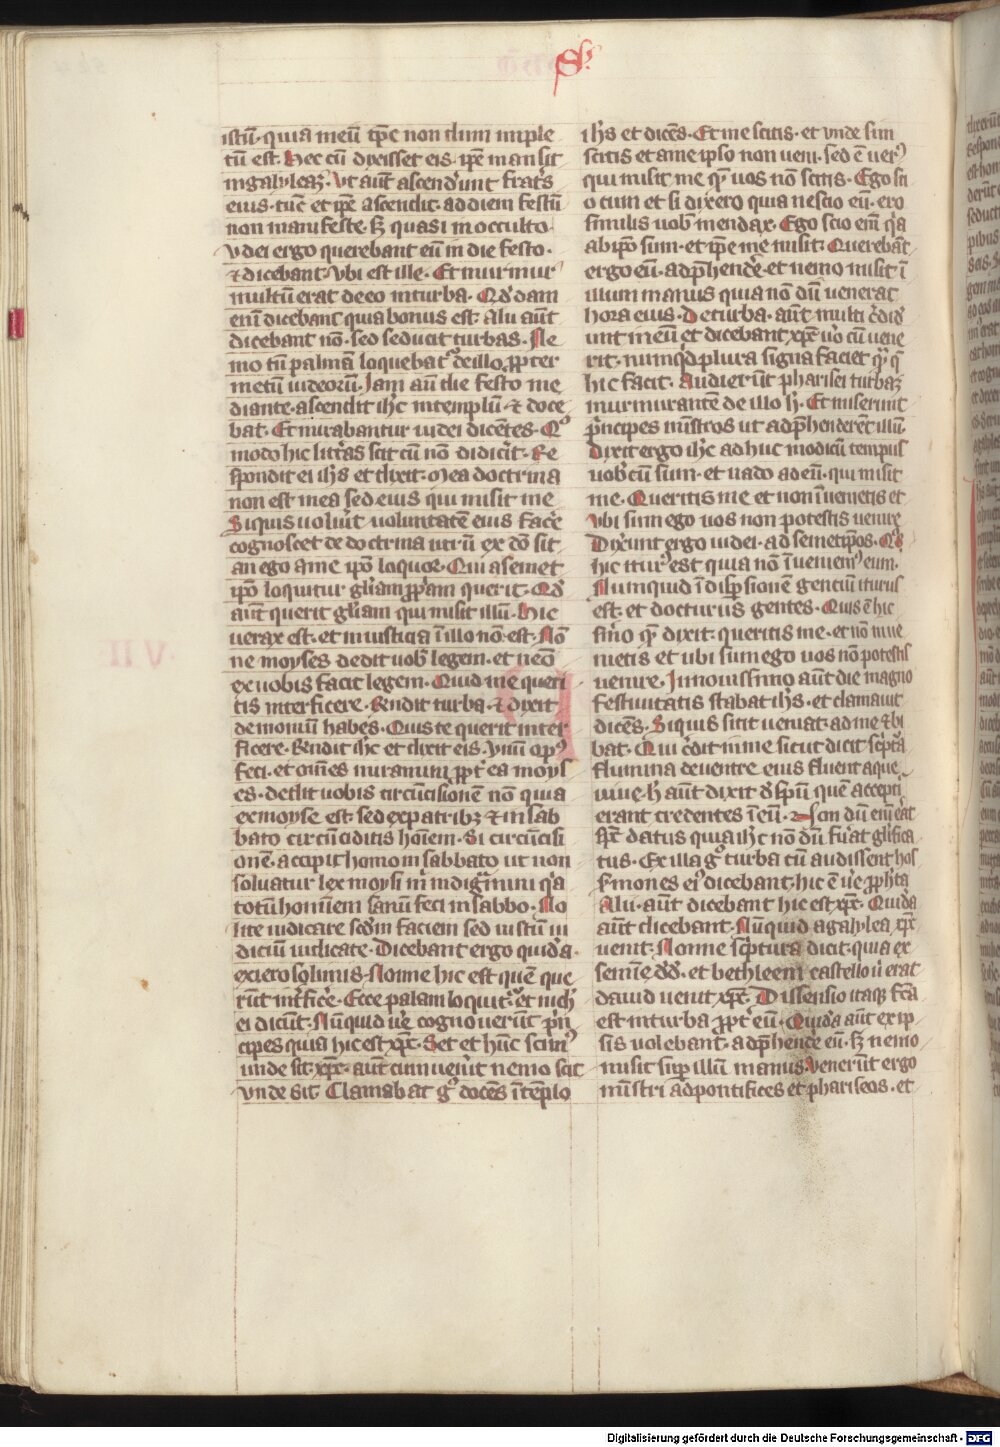 S
istū· quia meū tp̄e non dum imple
tū est· Hec cū dixisset eis· ip̄e mansit
in galyleaȝ· Vt aūt ascendunt fratrs
eius· tūc et ip̄e ascendit· ad diem festū
non manifeste· sȝ quasi in occulto·
vdei ergo querebant eū in die festo·
⁊ dicebant· vbi est ille· Et murmur
multū erat de eo in turba· Qd̄dam
enī dicebant quia bonus est· alii aūt
dicebant nō· sed seducit turbas· Ne
mo tn̄ palam loquebat᷑ de illo· ꝓpter
metū iudeorū· Iam aūt die festo me
diante· ascendit ih̄c in templū· ⁊ doce
bat· Et mirabantur iudei dicētes· Qo
modo hic litt̄as scit cū nō didicit· Re
spondit ei ih̄s et dixit· Mea doctrina
non est mea sed eius qui misit me
Si quis voluīt voluntatē eius facē
cognoscet de doctrina utrū ex dō sit
an ego a me ip̄o loquor· Qui a semet
ip̄o loquitur gl̄iam ꝓpiam querit· Qd̄
aūt querit gl̄iam qui misit illū· Hic
verax est· et iniusticia ī illo nō est· Nō
ne moyses dedit vob legem· et nēo
ex vobis facit legem· Quid me queri
tis interficere· Rendit turba· ⁊ dixit
demoniū habes· Quis te querit inter
ficere· Rendit ih̄c et dixit eis· Vnū opꝰ
feci· et om̄es miramini· ꝓpt ea moys
es· dedit vobis circūcisionē nō quia
ex moyse est sed ex patribȝ ⁊ in sab
bato circūciditis hoīem· Si circūcisi
onē· accipit homo in sabbato ut non
soluatur lex moysi m̄ indigmini qa
totū hominem sanū feci in sabbo· No
lite iudicare scd̄m faciem sed iustū iu
dicium iudicate· Dicebant ergo quida·
ex ierosolimis· Nonne hic est quē que
rūt int̄ficē· Ecce palam loquit᷑ et nich
ei dicūt· Nūquid ue cognouerūt pn̄
cipes quia hic est xp̄c· Set et hūc scimꝰ
unde sit· xp̄c· aūt cum venīt nemo scit
vnde sit· Clamabat gͦ docēs ī tēplo
ih̄s et dicēs· Et me scitis· et vnde sim
scitis et a me ipso non veni· sed ē verꝰ
qui misit me qͣ vos nō scitis· Ego sci
o eum et si dixero quia nescio eū· ero
similis vob mendax· Ego scio eū· qa
ab ip̄o sum· et ip̄e me misit· Querebāt
ergo eū· adp̄hendē· et nemo misit ī
illum manus quia nō dū venerat
hora eius· De turba· aūt multi c̄did
unt in eū et dicebant xp̄c u̅o cū vene
rit· numqͥd plura signa faciet qͣ q̄
hic facit· Audierūt pharisei turbaȝ
murmurantē de illo h̄· Et miserunt
pͥncipes mīstros ut adp̄henderēt illū·
Dixit ergo ih̄c adhuc modicū tempus
vob cū sum· et vado ad eū· qui misit
me· Queritis me et non īuenietis et
vbi sum ego vos non potestis venire
Dixeunt ergo iudei· ad semetip̄os· Qo
hic iturꝰ est quia nō īueniemꝰ eum·
Numquid ī disp̄sionē gentiū iturus
est· et docturus gentes· Quis ē hic
s̄mo qͣ dixit· queritis me· et nō inue
nietis et ubi sum ego vos nō potestis
venire· In nouissimo aūt die magno
festiuitatis stabat ih̄s· et clamauit
dicēs· Si quis sitit veniat· ad me ⁊ bi
bat· Qui c̄dit in me sicut dicit scpt̄a
flumina de ventre eius fluent aque
viue· h̄ aūt dixit d̄ spū quē accepti
erant credentes ī eū· Non dū enī erat
sps datus quia ih̄c nō dū fuat gl̄ifica
tus· Ex illa gͦ turba cū audissent hos
s̄mones eiꝰ dicebant· hic ē ue ꝓphta
Alii· aūt dicebant hic est xp̄c· Quida
aūt dicebant· Nūquid a galylea xp̄c
venit· Nonne scptura dicit· quia ex
semīe dd̄· et bethleem castello u̅ erat
dauid venit xp̄c· Dissensio itaqȝ fc̄a
est in turba ꝓpt eū· Quida aūt ex ip
sis volebant· adp̄hendē eū· sȝ nemo
misit sup illū manus· Venerūt ergo
mīstri ad pontifices et phariseos· et
Digitalisierung gefördert durch die Deutsche Forschungsgemeinschaft - DFG